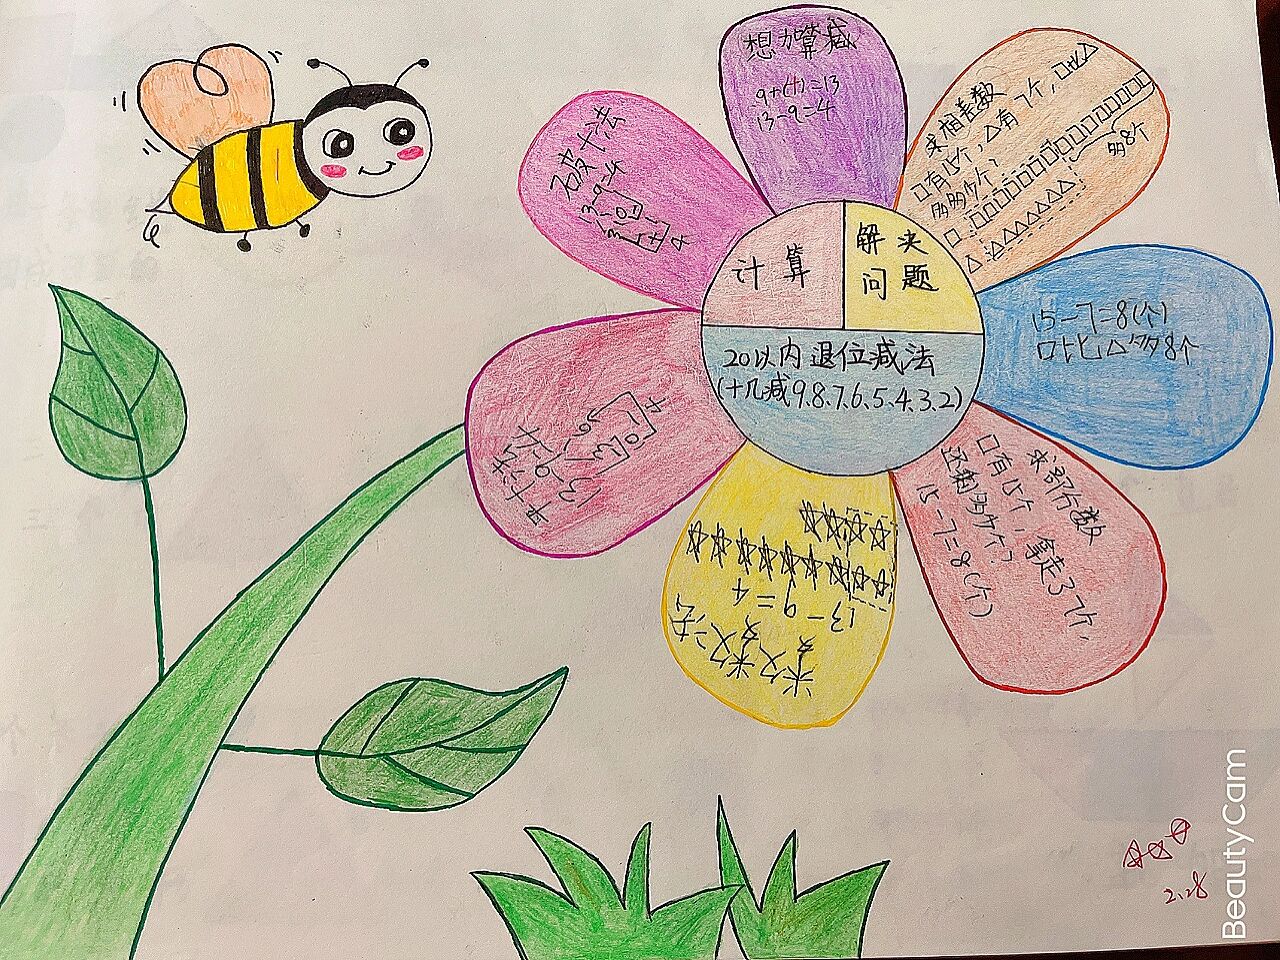 计算
解决
问题
20以内退位减法
(十几减9.8.7.6.5.4.3.2)
想加算减
9+(4)=13
13-9=4
求相差数
□有15个,△有7个,□比△
多多少个?
□□□□□□□□□□□□□□□
△△△△△△△
多8个
15-7=8(个)
□比△多8个
求部分数
□有15个,拿走了7个,
还剩多少个?
15-7=8(个)
☆☆☆☆
☆☆☆☆☆☆☆☆☆
13-9=4
数数法
平十法
13-9=4
3
10
破十法
13-9=4
10
3
1+
4
☆☆☆
2.28
BeautyCam